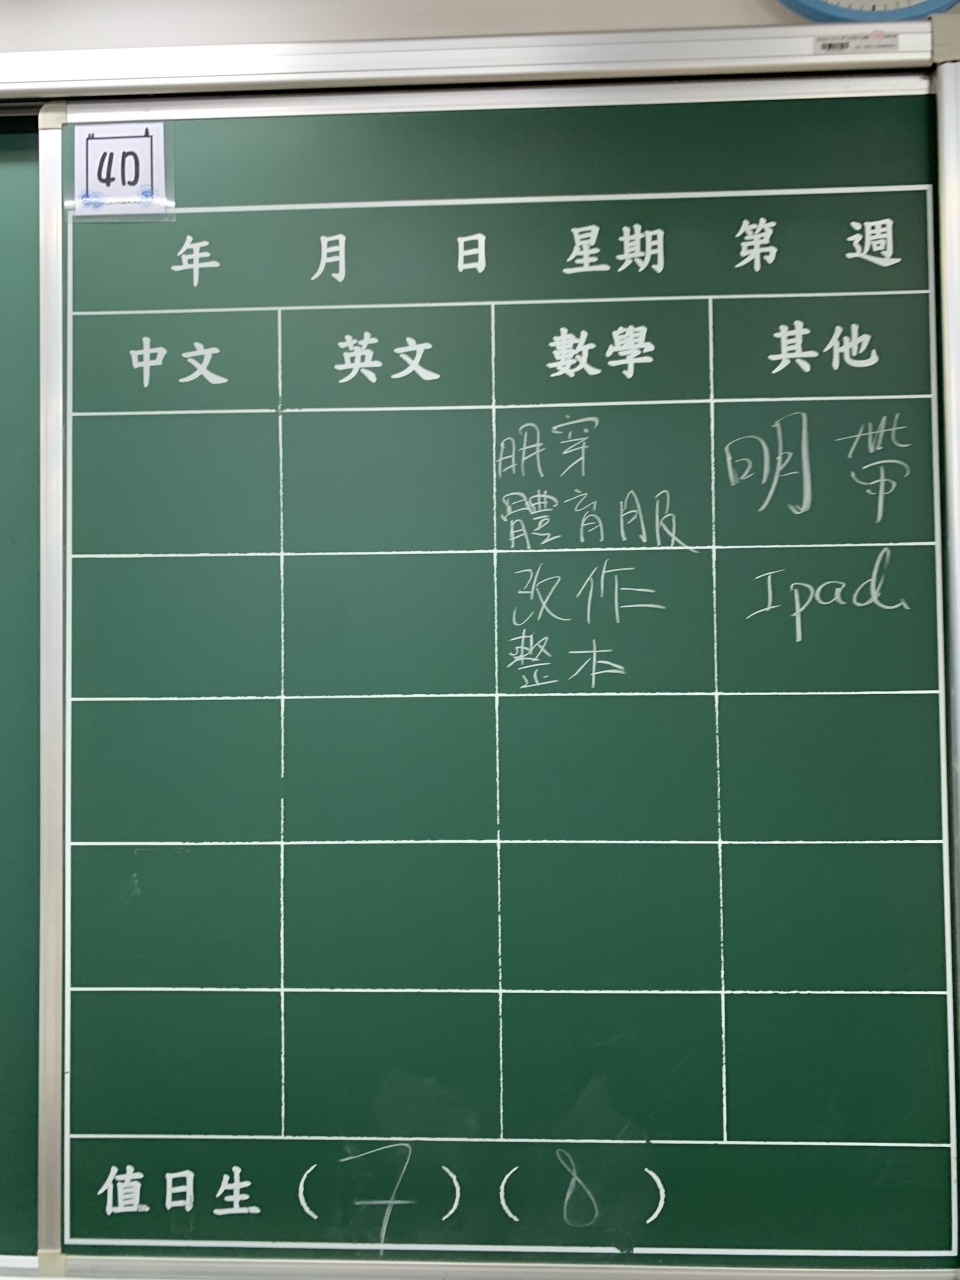 4D
年 月 日 星期 第 週
中文 英文 數學 其他
明穿
體育服
改作二
整本
明帶
Ipad.
值日生(7)(8)